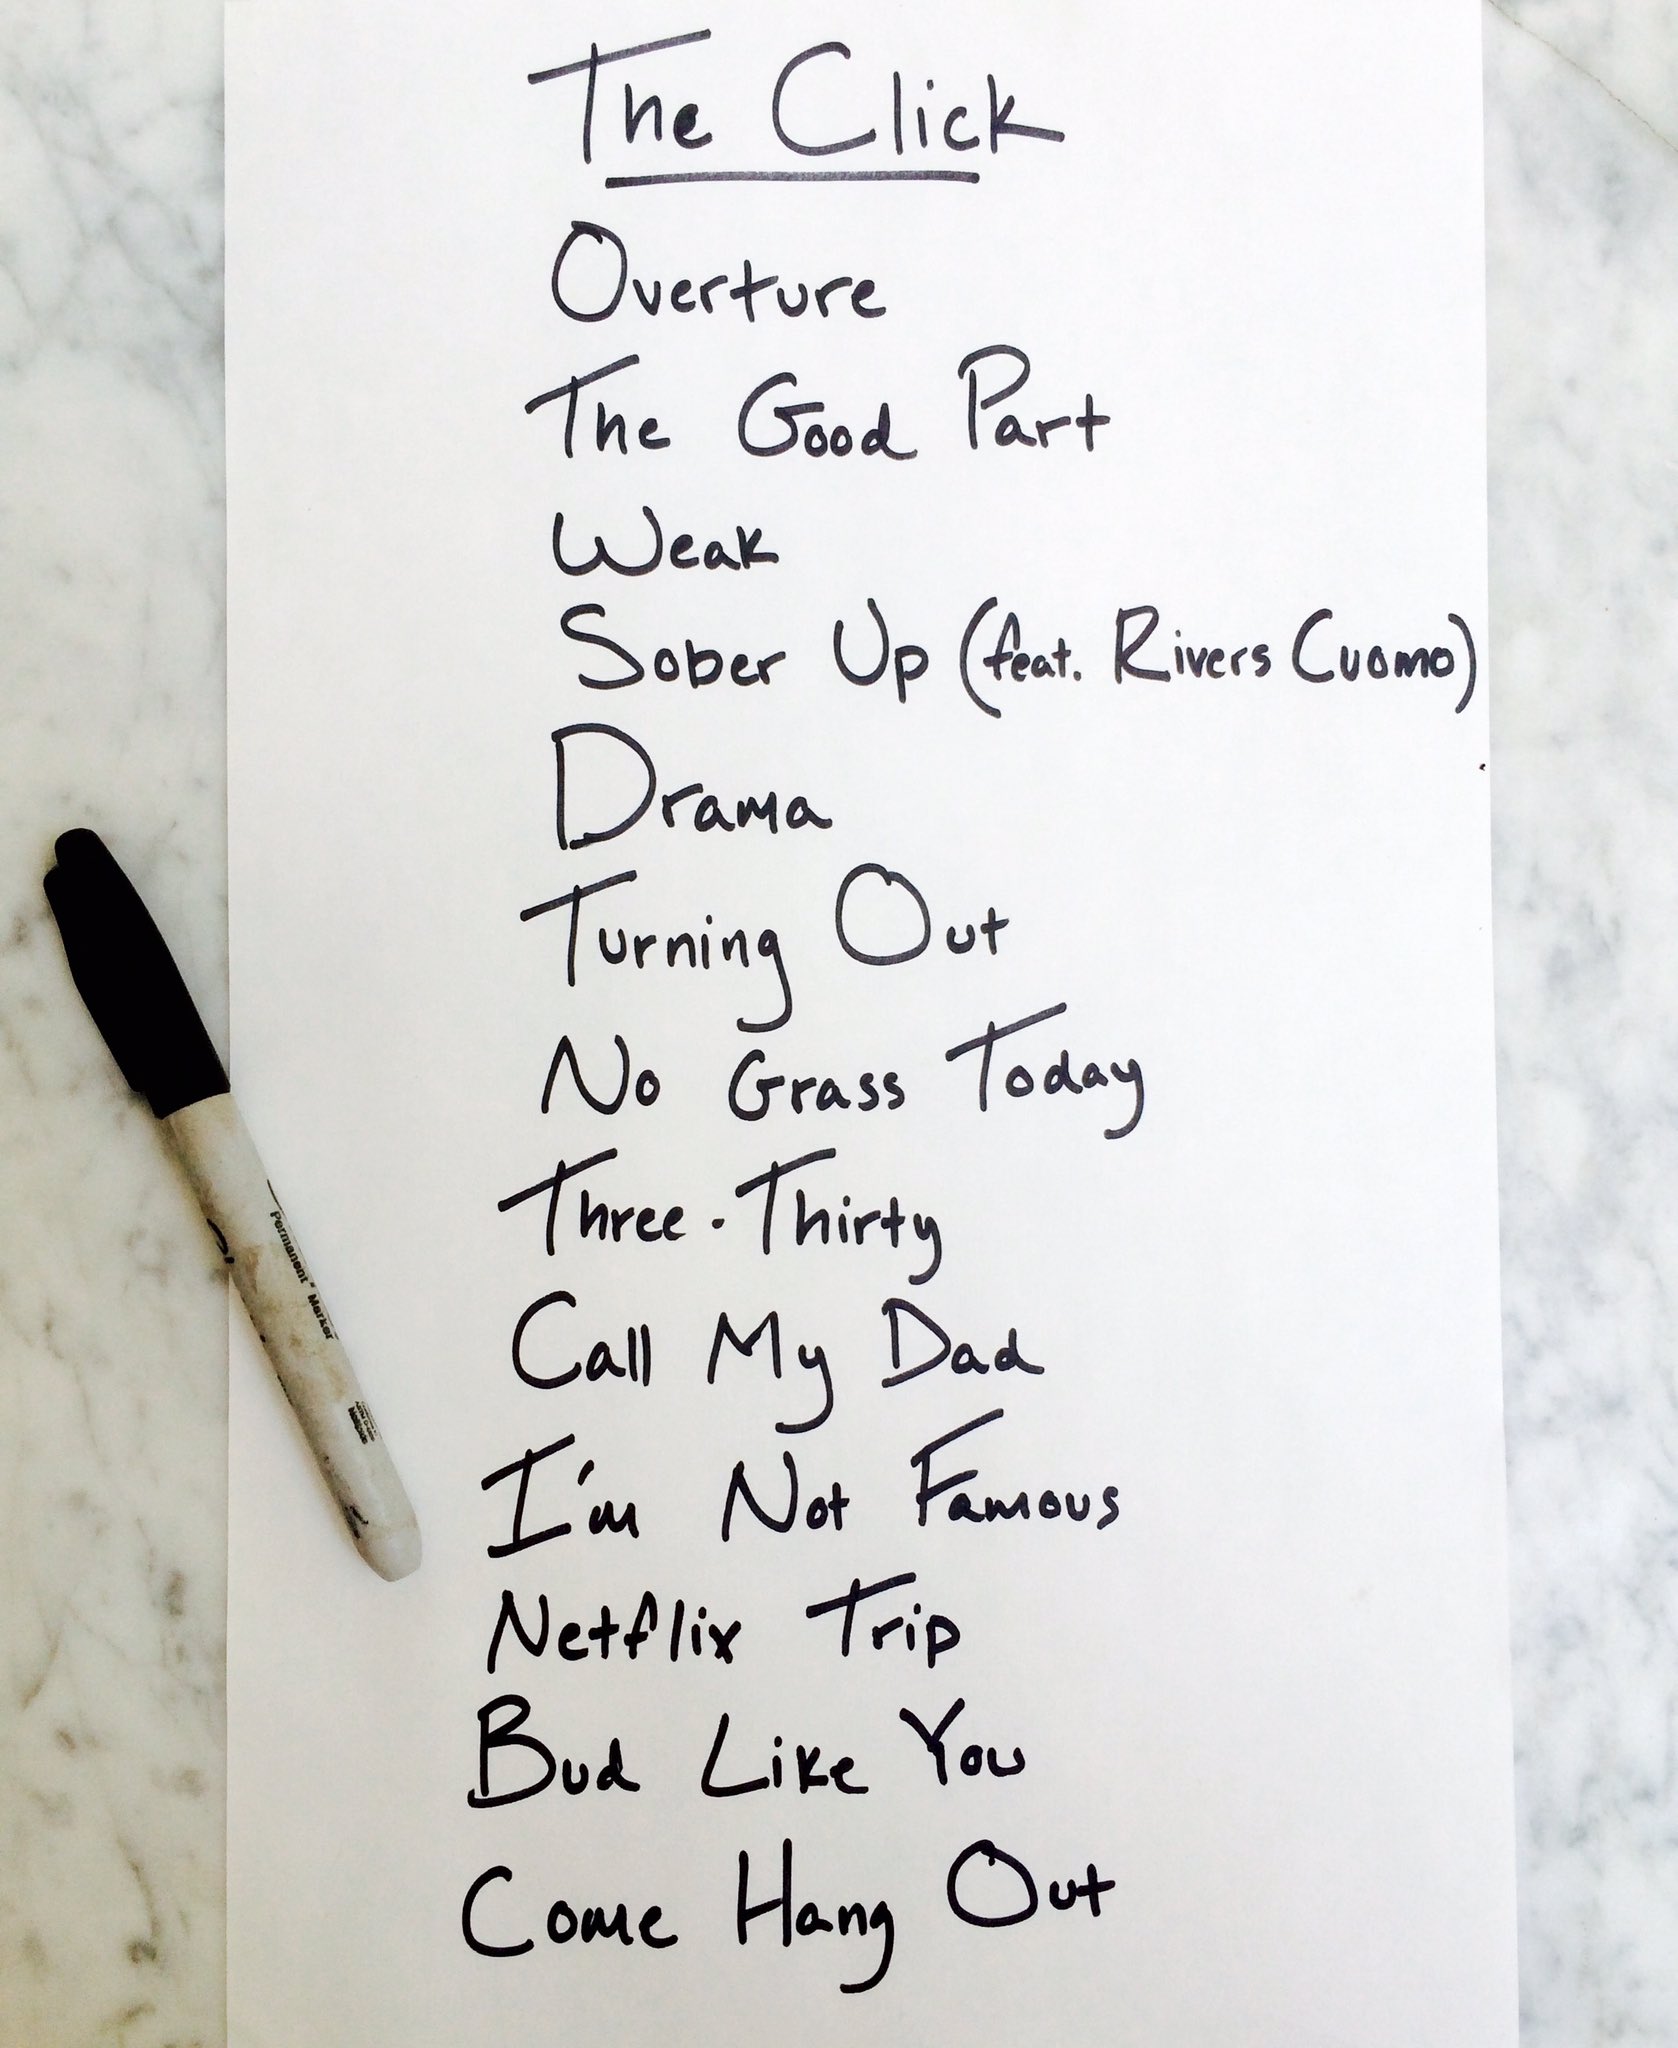 The Click
Overture
The Good Part
Weak
Sober Up (feat. Rivers Cuomo)
Drama
Turning Out
No Grass Today
Three-Thirty
Call My Dad
I'm Not Famous
Netflix Trip
Bud Like You
Come Hang Out
Permanent Marker